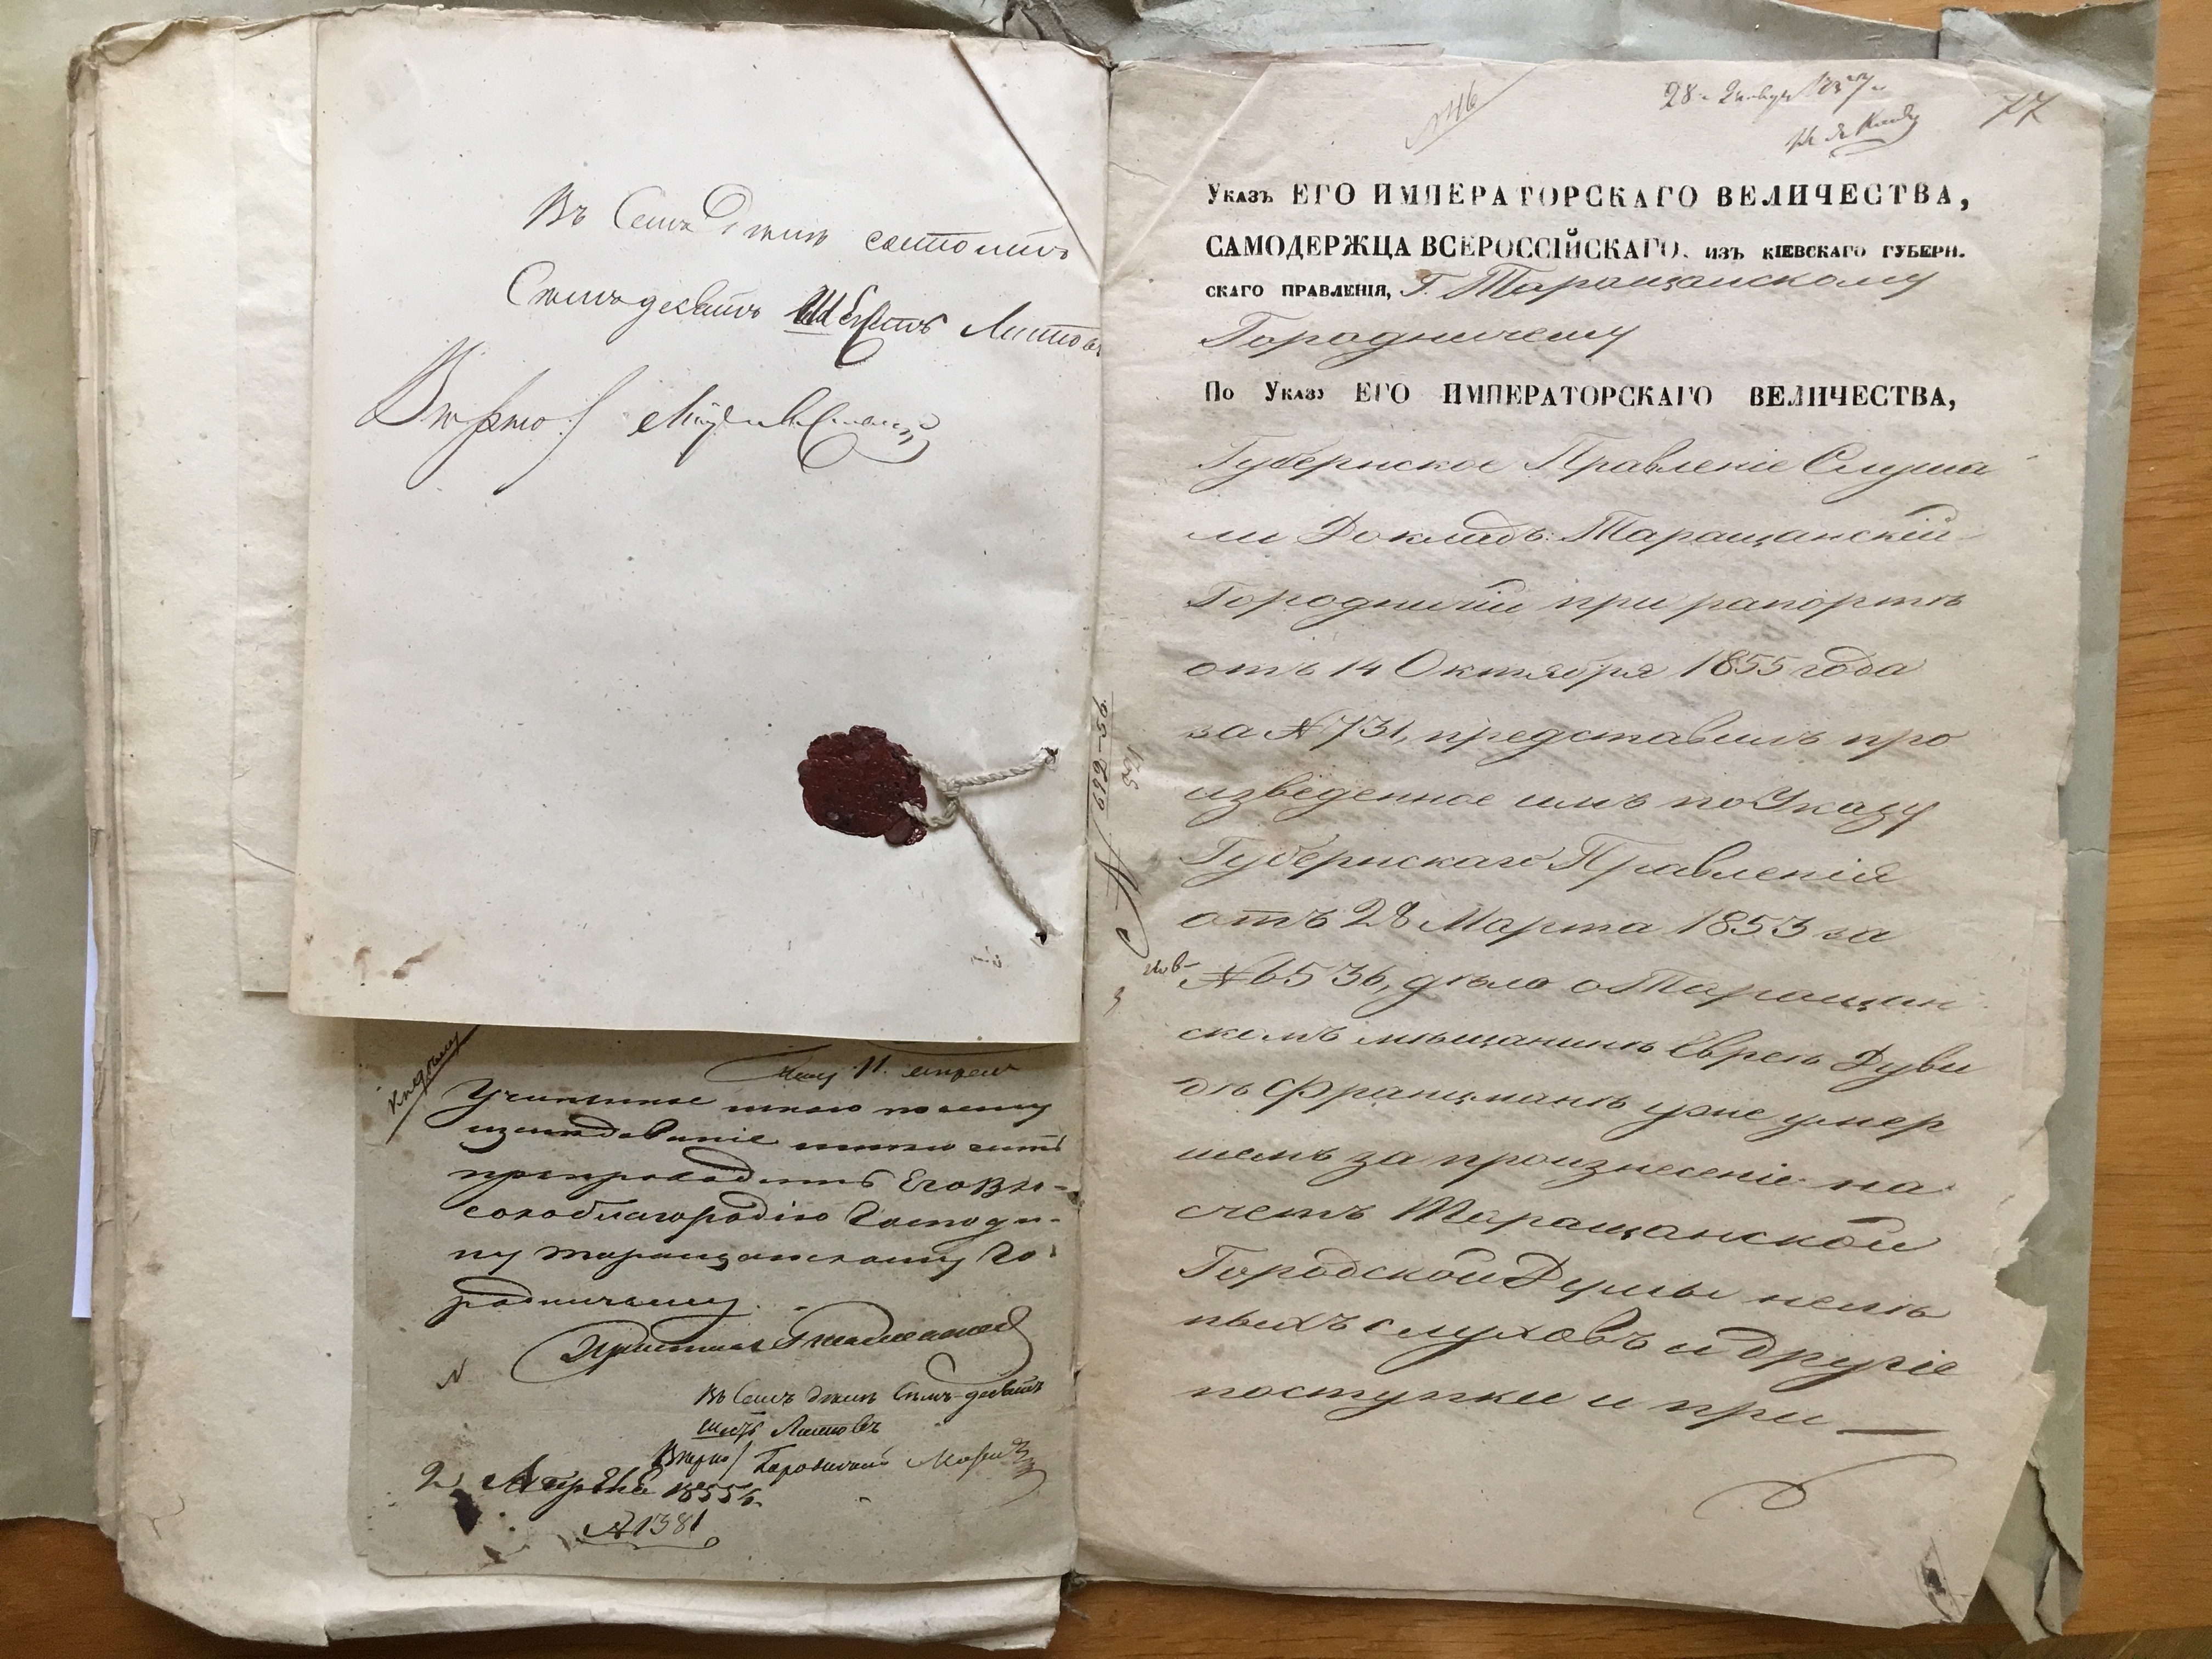 Въ Семъ Дѣлѣ состоитъ
Семьдесятъ Шесть Листовъ
Вѣрно /
11. апреля
Учиненное мною по сему
изслѣдованіе имею честь
препроводить Его Вы-
сокоблагородію Господи-
ну Таращанскому Го-
родничему.
Въ Семъ дѣлѣ Семь-десять
шесть Листовъ
Вѣрно /
2 Апрѣля 1855 г.
№ 1381
№ 692-56
521
28 Января 1857 г.
77
Указъ ЕГО ИМПЕРАТОРСКАГО ВЕЛИЧЕСТВА,
САМОДЕРЖЦА ВСЕРОССІЙСКАГО, изъ кіевскаго губерн.
скаго правленія, Г. Таращанскому
Городничему
По Указу ЕГО ИМПЕРАТОРСКАГО ВЕЛИЧЕСТВА,
Губернское Правленіе Слуша
ли Докладъ: Таращанскій
Городничій при рапортѣ
отъ 14 Октября 1855 года
за № 731, представилъ про
изведенное имъ по Указу
Губернскаго Правленія
отъ 28 Марта 1853 за
№ 6536, дѣло о Таращан
скомъ мѣщанинѣ Евреѣ Дуви
дѣ Францманѣ уже умер
шемъ за произнесеніе на
счетъ Таращанской
Городской Думы нелѣ
пыхъ слуховъ и другіе
поступки и при